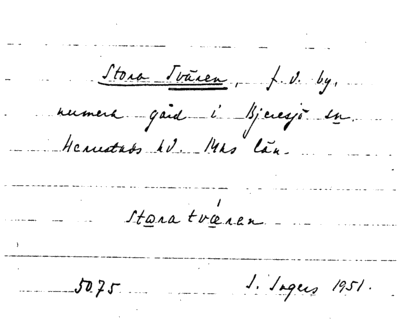 Stora Tvären, f.d. by,
numera gård i Bjeresjö sn.
Herrestads hd. Mhs län.
stora tvären
5075 S. Ingers 1951.